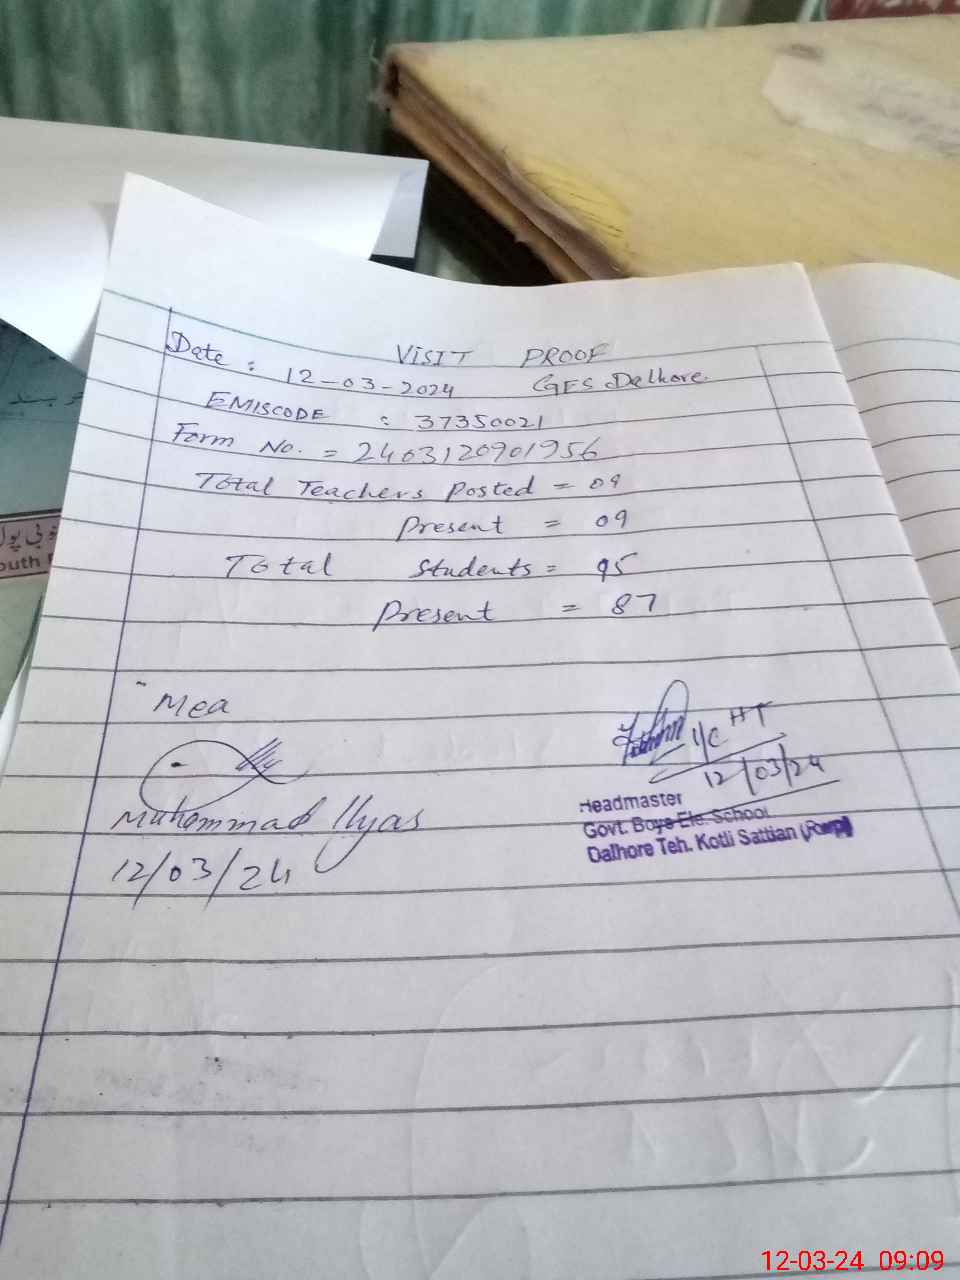 VISIT PROOF
Date : 12-03-2024 GES Dalhore.
EMISCODE : 37350021
Form No. = 2403120901956
Total Teachers Posted = 09
Present = 09
Total Students = 95
Present = 87
Mea
I/C HT
12/03/24
Muhammad Ilyas
12/03/24
Headmaster
Govt. Boys Ele. School
Dalhore Teh. Kotli Sattian (Rwp)
جنوبی پول
South
12-03-24 09:09